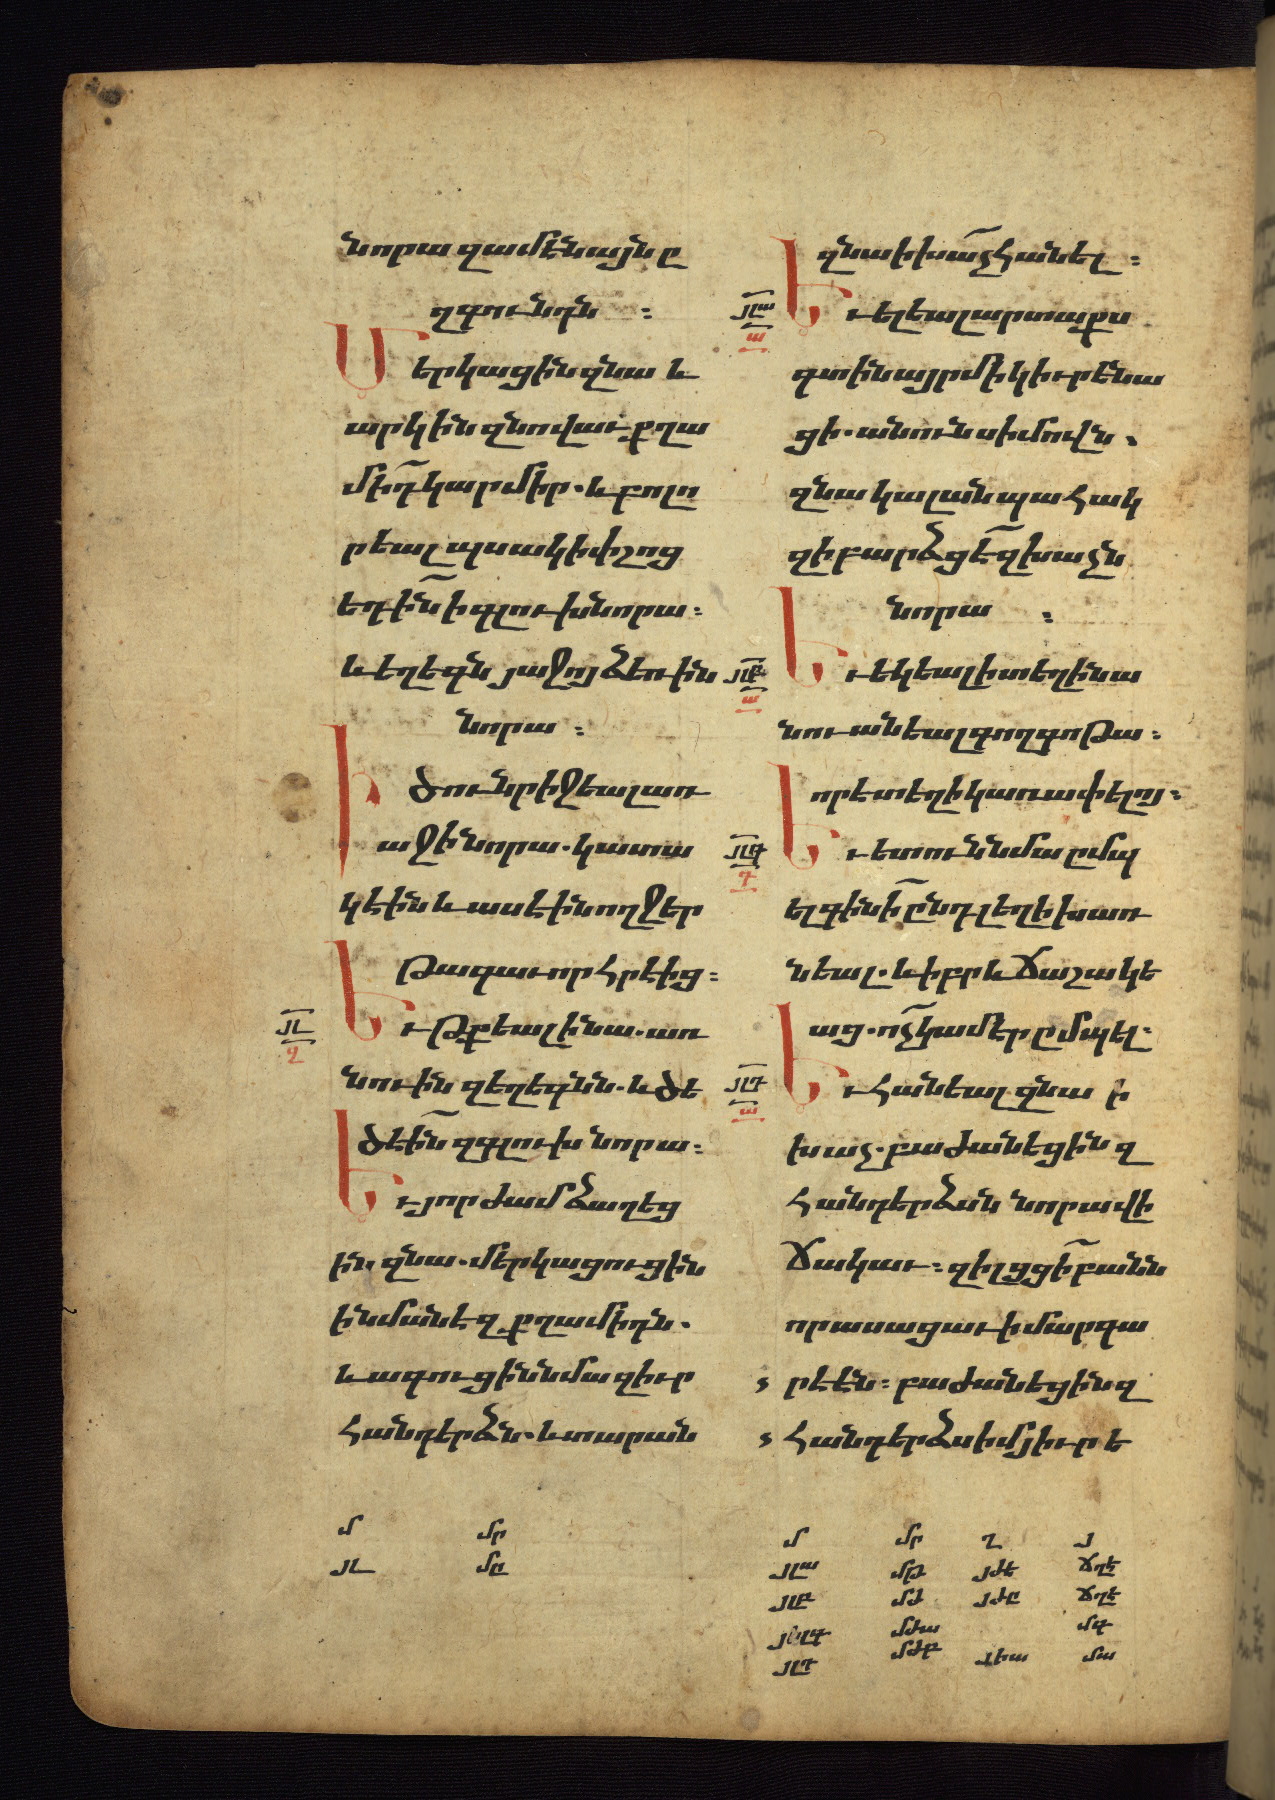 նորա զամենայն ը
զգունդն ։
Մերկացին զնա և
արկին զնովաւ քղա
միդ կարմիր . և բոլո
րեալ պսակ ի փշոց
եդին ի գլուխ նորա ։
և եղեգն յաջոյ ձեռին
նորա ։
Ի ծունր իջեալ առ
աջի նորա . կատա
կէին և ասէին ողջ եր
թագաւոր հրէից ։
յլ
զ
Եւ թքեալ ի նա . առ
նուին զեղեգնն . և ծե
ծէին զգլուխ նորա ։
Եւ յորժամ ձաղեց
ին զնա . մերկացուցին
ի նմանէ զքղամիդն .
և ագուցին նմա զիւր
հանդերձն . և տարան
մ մր
յլ մը
զնա ի խաչ հանել ։
յլա
ա
Եւ ելեալ արտաքս
գտին այր մի կիւրենա
ցի . անուն սիմովն .
զնա կալան պահակ
զի բարձցէ զխաչն
նորա ։
յլբ
ա
Եւ եկեալ ի տեղի նա
նուանեալ գողգոթա ։
որ է տեղի կառափելոյ ։
յլգ
դ
Եւ ետուն նմա ըմպ
ել գինի ընդ լեղի խառ
նեալ . և իբրև ճաշակե
աց . ոչ կամէր ըմպել ։
յլդ
ա
Եւ հանեալ զնա ի
խաչ . բաժանեցին զ
հանդերձան նորա վի
ճակաւ ։ զի լցցի բանն
որ ասացաւ ի մարգա
րէէն ։ բաժանեցին զ
հանդերձս իմ յիւրե
մ մր ղ յ
յլա մթ յժե ճղէ
յլբ մժ յժը ճղէ
յլգ մժա մգ
յլդ մժբ յխա մա